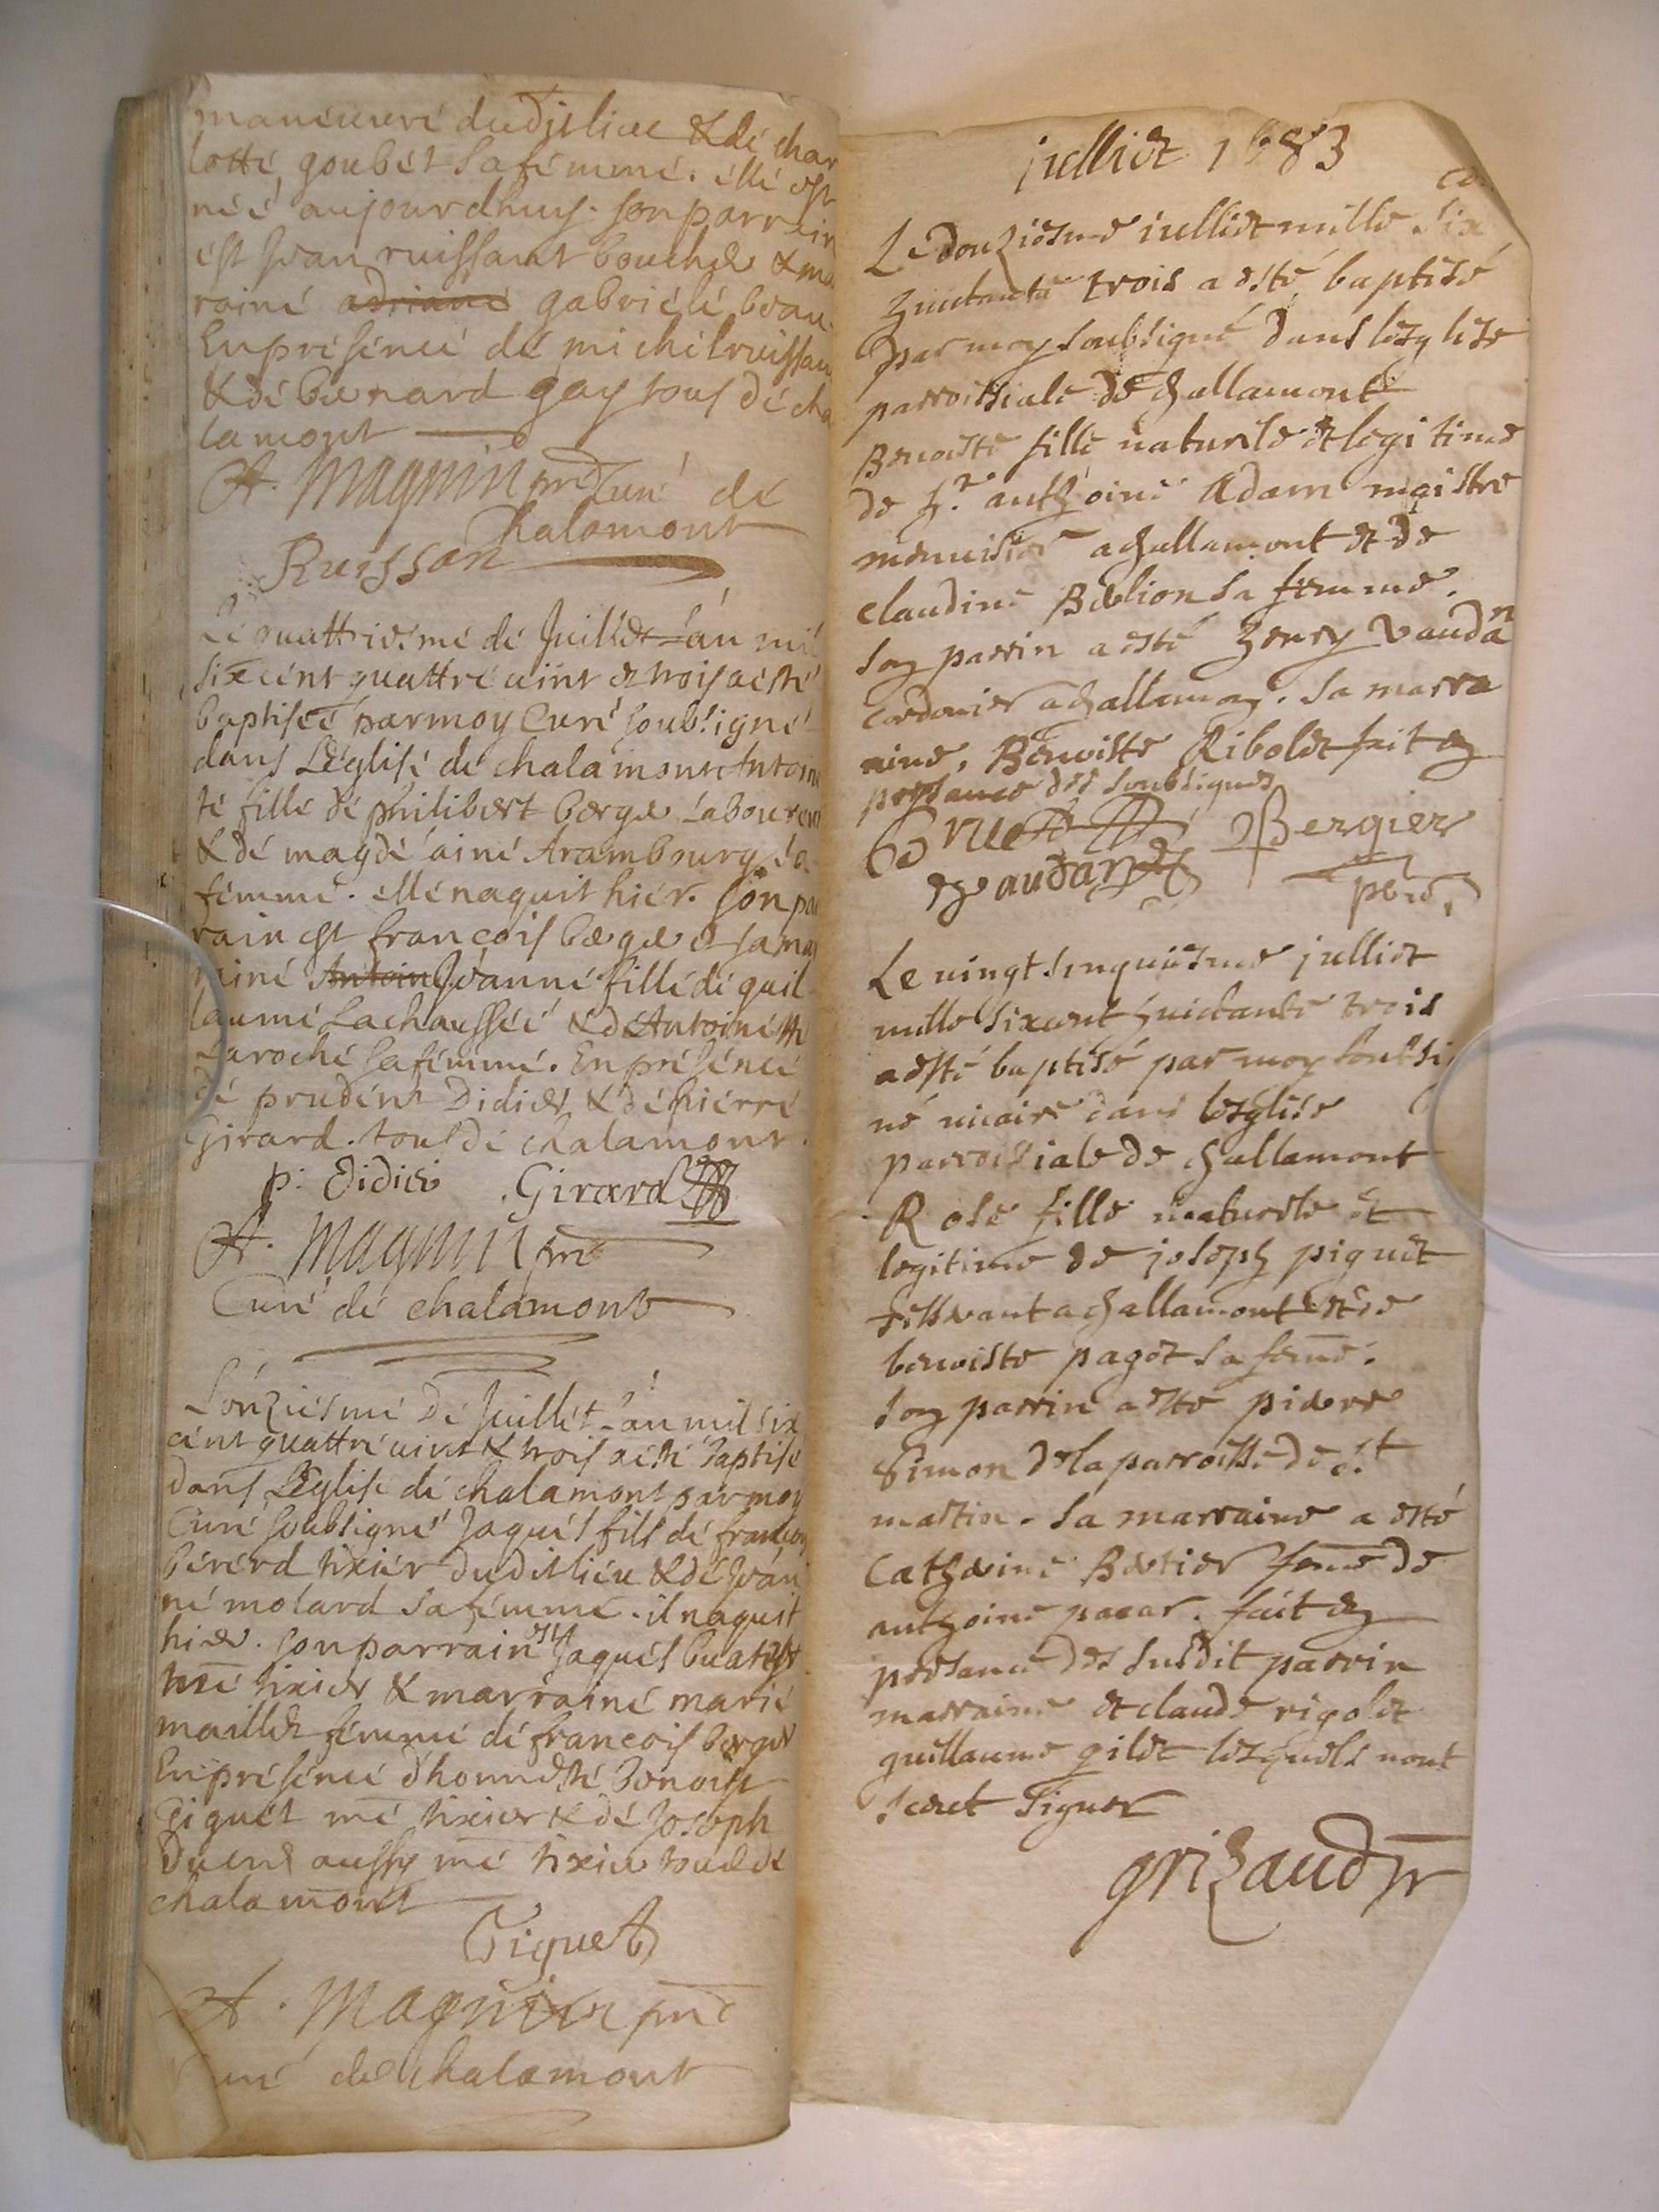 manieuvré dudit lieu & dé char
lotté goubét sa fémmé. éllé est
néé aujourdhuy. son parrein
ést Jean ruissant boucher & ma
rainé adriané gabriélé beau
En préséncé dé michél ruissan
& dé benard gay tous dé cha
lamont
A. Magnin pre Curé de
Chalamont
Ruissan
Lé quattriésmé dé Juillét l'an mil
sixcént quattré uint & trois a esté
baptiseé par moy Curé soubsigné
dans L'églisé dé chalamont Antoin
té fillé dé philibert berger Laboureur
& dé magdélainé Arambourg sa
fémmé. ellé naquit hiér. son pa
rain est françois berger & sa ma
rainé Antoin Jeanné fillé dé guil
laumé Lachausséé & dé Antoinétté
Laroché sa fémmé. En présencé
dé prudént Didier & dé piérré
Girard. tous dé chalamont.
p: Didier Girard
A. Magnin pre
Curé dé chalamont
L'onziésmé dé Juillét L'an mil six
cént quattré uint & trois a ésté baptisé
dans L'églisé dé chalamont par moy
Curé soubsigné Jaqués fils dé françois
bérérd tixiér dudit liéu & dé Jean
né molard sa fémmé. il naquit
hier. son parrain est Jaqués
tixier & marrainé marié
maillet fémmé dé françois berger
En préséncé d'honnesté benoist
Giguét mé tixier & dé Joseph
aussy mé tixier tous dé
chalamont
Giguet
A. Magnin pre
Curé de chalamont
julliet 1683
Le douziesme julliet mille six
huictante trois a esté baptisé
par moy soubsigné dans lesglise
parroissiale de challamont
Benoiste fille naturele et legitime
de sr. anthoine Adam maistre
menuisier a challamont et de
claudine Bertion sa femme.
son parrin a esté henry Vaudan
cordonier a challamon. sa marra
aine, Benoiste Ribolet fait en
presance des soubsignes
Bruet Bergier
Vaudan pbre,
Le vingt sinquiesme julliet
mille sixcent huictante trois
a esté baptisé par moy soubsi
né vicaire dans lesglise
parroissiale de challamont
Rose fille naturele et
legitime de joseph piguet
tisserant a challamont et de
benoiste paget sa feme.
son parrin a esté pierre
Simon de la parroisse de St
martin. sa marraine a esté
Catherine Bertier feme de
anthoine pacar. fait en
presance des susdit parrin
marraine et claude rigolet
guillaume gilet lesquels nont
sceut signer
grizaud pr